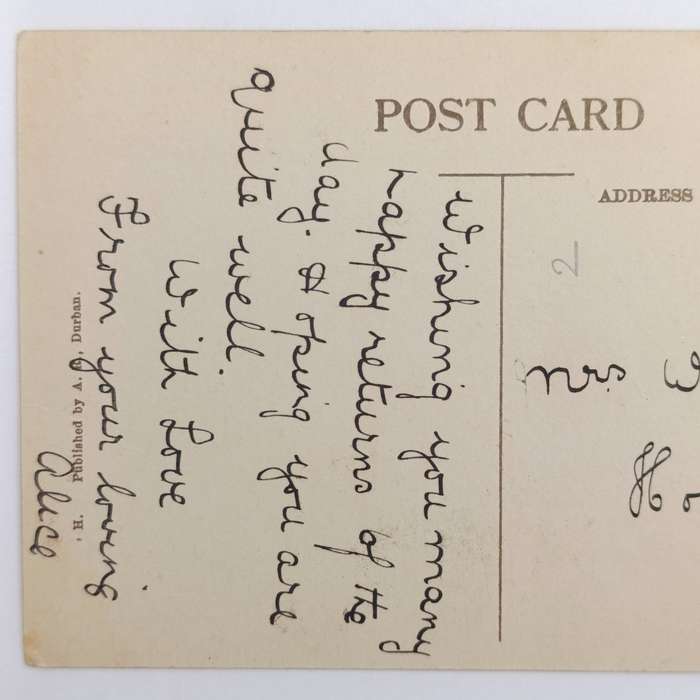 POST CARD
ADDRESS
2
Wishing you many
happy returns of the
day. Hoping you are
quite well.
With Love
From your loving
Alice
H. Published by A. , Durban.